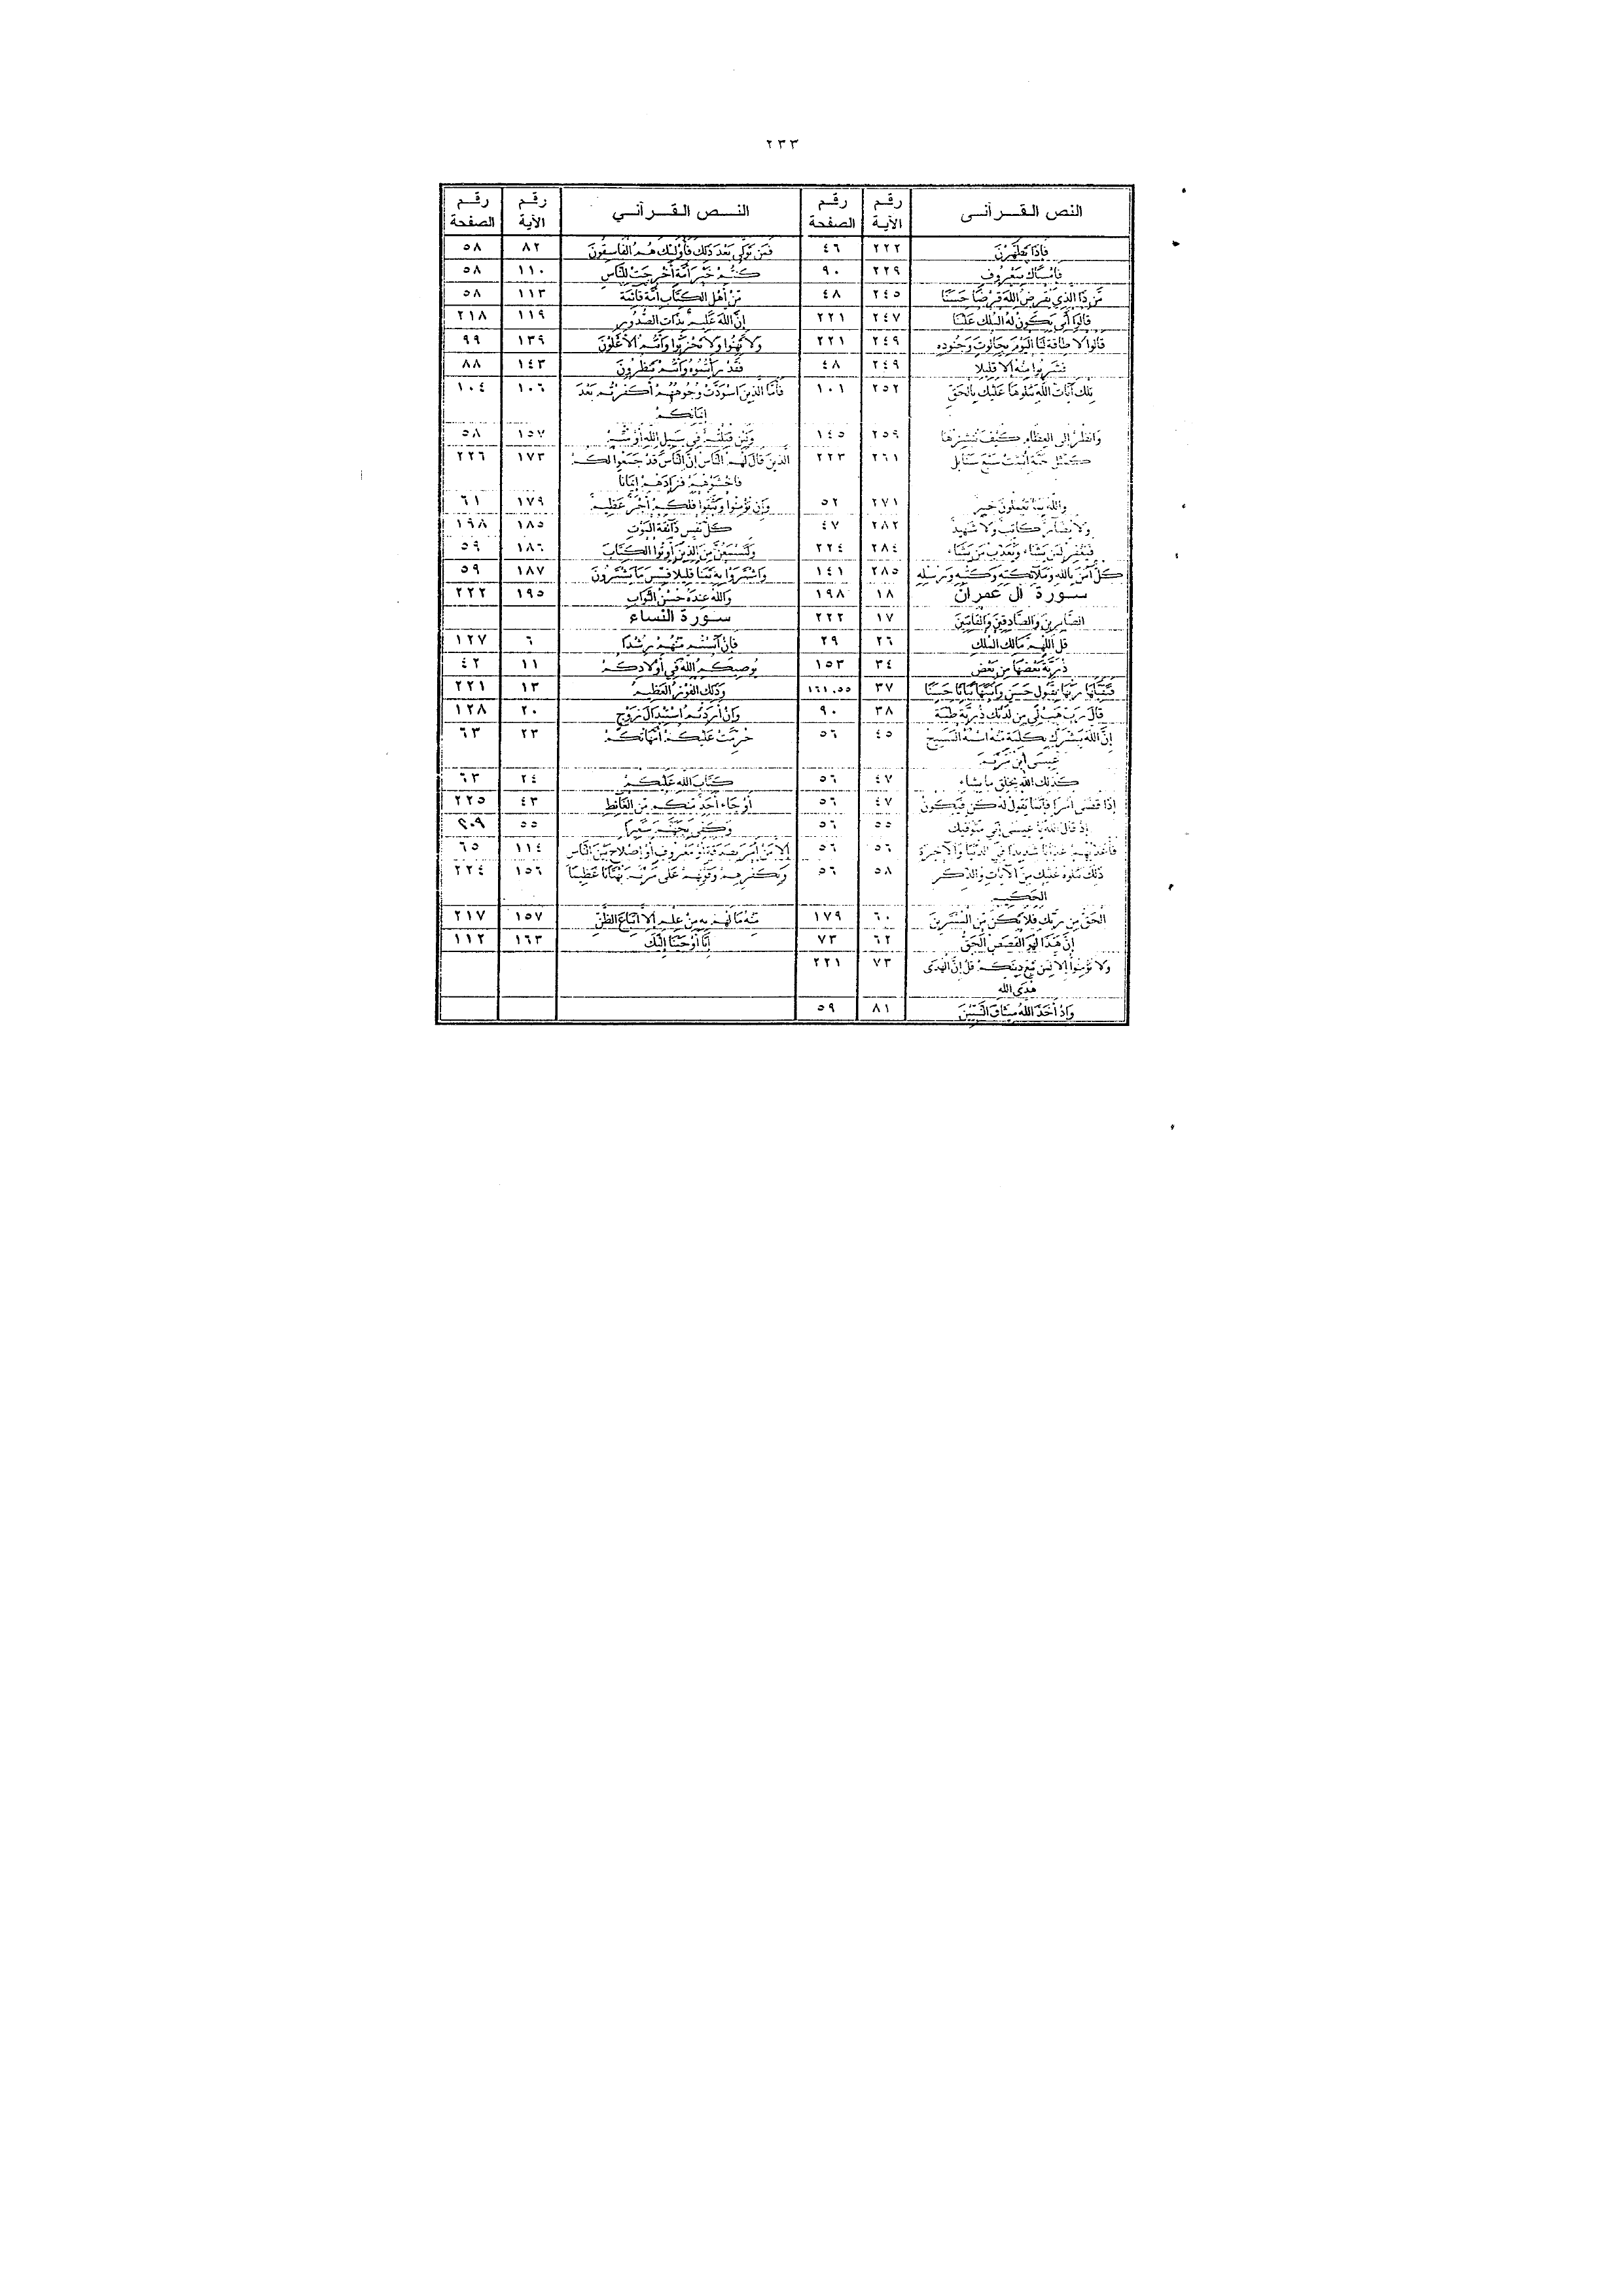 ٢٣٣
النص القرآنى رقم الآية رقم الصفحة النص القرآني رقم الآية رقم الصفحة
فَإِذَا تَطَهَّرْنَ ٢٢٢ ٤٦ فَمَن تَوَلَّى بَعْدَ ذَلِكَ فَأُوْلَئِكَ هُمُ الفَاسِقُونَ ٨٢ ٥٨
فَإِمْسَاكٌ بِمَعْرُوفٍ ٢٢٩ ٩٠ كُنتُمْ خَيْرَ أُمَّةٍ أُخْرِجَتْ لِلنَّاسِ ١١٠ ٥٨
مَّن ذَا الَّذِي يُقْرِضُ اللَّهَ قَرْضًا حَسَنًا ٢٤٥ ٤٨ مِّنْ أَهْلِ الكِتَابِ أُمَّةٌ قَائِمَةٌ ١١٣ ٥٨
قَالُوا أَنَّى يَكُونُ لَهُ المُلْكُ عَلَيْنَا ٢٤٧ ٢٢١ إِنَّ اللَّهَ عَلِيمٌ بِذَاتِ الصُّدُورِ ١١٩ ٢١٨
قَالُوا لا طَاقَةَ لَنَا اليَوْمَ بِجَالُوتَ وَجُنُودِهِ ٢٤٩ ٢٢١ وَلا تَهِنُوا وَلا تَحْزَنُوا وَأَنتُمُ الأَعْلَوْنَ ١٣٩ ٩٩
فَشَرِبُوا مِنْهُ إِلا قَلِيلا ٢٤٩ ٤٨ فَقَدْ رَأَيْتُمُوهُ وَأَنتُمْ تَنظُرُونَ ١٤٣ ٨٨
تِلْكَ آيَاتُ اللَّهِ نَتْلُوهَا عَلَيْكَ بِالْحَقِّ ٢٥٢ ١٠١ فَأَمَّا الَّذِينَ اسْوَدَّتْ وُجُوهُهُمْ أَكَفَرْتُم بَعْدَ ١٠٦ ١٠٤
إِيمَانِكُمْ
وَانظُرْ إِلَى العِظَامِ كَيْفَ نُنشِزُهَا ٢٥٩ ١٤٥ وَلَئِن قُتِلْتُمْ فِي سَبِيلِ اللَّهِ أَوْ مُتُّمْ ١٥٧ ٥٨
كَمَثَلِ حَبَّةٍ أَنبَتَتْ سَبْعَ سَنَابِلَ ٢٦١ ٢٢٣ الَّذِينَ قَالَ لَهُمُ النَّاسُ إِنَّ النَّاسَ قَدْ جَمَعُوا لَكُمْ ١٧٣ ٢٢٦
فَاخْشَوْهُمْ فَزَادَهُمْ إِيمَانًا
وَاللَّهُ بِمَا تَعْمَلُونَ خَبِيرٌ ٢٧١ ٥٢ وَإِن تُؤْمِنُوا وَتَتَّقُوا فَلَكُمْ أَجْرٌ عَظِيمٌ ١٧٩ ٦١
وَلا يُضَارَّ كَاتِبٌ وَلا شَهِيدٌ ٢٨٢ ٤٧ كُلُّ نَفْسٍ ذَائِقَةُ المَوْتِ ١٨٥ ١٩٨
فَيَغْفِرُ لِمَن يَشَاءُ وَيُعَذِّبُ مَن يَشَاءُ ٢٨٤ ٢٢٤ وَلَتَسْمَعُنَّ مِنَ الَّذِينَ أُوتُوا الكِتَابَ ١٨٦ ٥٩
كُلٌّ آمَنَ بِاللَّهِ وَمَلَائِكَتِهِ وَكُتُبِهِ وَرُسُلِهِ ٢٨٥ ١٤١ وَاشْتَرَوْا بِهِ ثَمَنًا قَلِيلا فَبِئْسَ مَا يَشْتَرُونَ ١٨٧ ٥٩
سورة آل عمران ١٨ ١٩٨ وَاللَّهُ عِندَهُ حُسْنُ الثَّوَابِ ١٩٥ ٢٢٢
الصَّابِرِينَ وَالصَّادِقِينَ وَالقَانِتِينَ ١٧ ٢٢٢ سورة النساء
قُلِ اللَّهُمَّ مَالِكَ المُلْكِ ٢٦ ٢٩ فَإِنْ آنَسْتُم مِّنْهُمْ رُشْدًا ٦ ١٢٧
ذُرِّيَّةً بَعْضُهَا مِن بَعْضٍ ٣٤ ١٥٣ يُوصِيكُمُ اللَّهُ فِي أَوْلادِكُمْ ١١ ٤٢
فَتَقَبَّلَهَا رَبُّهَا بِقَبُولٍ حَسَنٍ وَأَنبَتَهَا نَبَاتًا حَسَنًا ٣٧ ١٦١،٥٥ وَذَلِكَ الفَوْزُ العَظِيمُ ١٣ ٢٢١
قَالَ رَبِّ هَبْ لِي مِن لَّدُنكَ ذُرِّيَّةً طَيِّبَةً ٣٨ ٩٠ وَإِنْ أَرَدتُّمُ اسْتِبْدَالَ زَوْجٍ ٢٠ ١٢٨
إِنَّ اللَّهَ يُبَشِّرُكِ بِكَلِمَةٍ مِّنْهُ اسْمُهُ المَسِيحُ ٤٥ ٥٦ حُرِّمَتْ عَلَيْكُمْ أُمَّهَاتُكُمْ ٢٣ ٦٣
عِيسَى ابْنُ مَرْيَمَ
كَذَلِكِ اللَّهُ يَخْلُقُ مَا يَشَاءُ ٤٧ ٥٦ كِتَابَ اللَّهِ عَلَيْكُمْ ٢٤ ٦٣
إِذَا قَضَى أَمْرًا فَإِنَّمَا يَقُولُ لَهُ كُن فَيَكُونُ ٤٧ ٥٦ أَوْ جَاءَ أَحَدٌ مِّنكُم مِّنَ الغَائِطِ ٤٣ ٢٢٥
إِذْ قَالَ اللَّهُ يَا عِيسَى إِنِّي مُتَوَفِّيكَ ٥٥ ٥٦ وَكَفَى بِجَهَنَّمَ سَعِيرًا ٥٥ ٢٠٩
فَأُعَذِّبُهُمْ عَذَابًا شَدِيدًا فِي الدُّنْيَا وَالآخِرَةِ ٥٦ ٥٦ إِلا مَنْ أَمَرَ بِصَدَقَةٍ أَوْ مَعْرُوفٍ أَوْ إِصْلاحٍ بَيْنَ النَّاسِ ١١٤ ٦٥
ذَلِكَ نَتْلُوهُ عَلَيْكَ مِنَ الآيَاتِ وَالذِّكْرِ ٥٨ ٥٦ وَبِكُفْرِهِمْ وَقَوْلِهِمْ عَلَى مَرْيَمَ بُهْتَانًا عَظِيمًا ١٥٦ ٢٢٤
الحَكِيمِ
الْحَقُّ مِن رَّبِّكَ فَلا تَكُن مِّنَ المُمْتَرِينَ ٦٠ ١٧٩ مِّنْهُ مَا لَهُم بِهِ مِنْ عِلْمٍ إِلا اتِّبَاعَ الظَّنِّ ١٥٧ ٢١٧
إِنَّ هَذَا لَهُوَ القَصَصُ الحَقُّ ٦٢ ٧٣ إِنَّا أَوْحَيْنَا إِلَيْكَ ١٦٣ ١١٢
وَلا تُؤْمِنُوا إِلا لِمَن تَبِعَ دِينَكُمْ قُلْ إِنَّ الهُدَى ٧٣ ٢٢١
هُدَى اللَّه
وَإِذْ أَخَذَ اللَّهُ مِيثَاقَ النَّبِيِّينَ ٨١ ٥٩